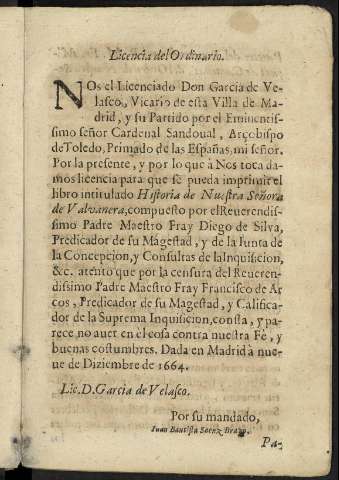 Licencia del Ordinario.
NOs el Licenciado Don Garcia de Ve-
lasco, Vicario de esta Villa de Ma-
drid, y su Partido por el Eminentis-
simo señor Cardenal Sandoual, Arçobispo
de Toledo, Primado de las Españas, mi señor.
Por la presente, y por lo que à Nos toca da-
mos licencia para que se pueda imprimir el
libro intitulado Historia de Nuestra Señora
de Valvanera, compuesto por el Reuerendis-
simo Padre Maestro Fray Diego de Silva,
Predicador de su Magestad, y de la Iunta de
la Concepcion, y Consultas de la Inquisicion,
&c. atento que por la censura del Reueren-
dissimo Padre Maestro Fray Francisco de Ar
cos, Predicador de su Magestad, y Califica-
dor de la Suprema Inquisicion, consta, y pa-
rece no auer en el cosa contra nuestra Fè, y
buenas costumbres. Dada en Madrid à nue-
ue de Diziembre de 1664.
Lic. D. Garcia de Velasco.
Por su mandado,
Iuan Bautista Saenz Brauo.
Pa-